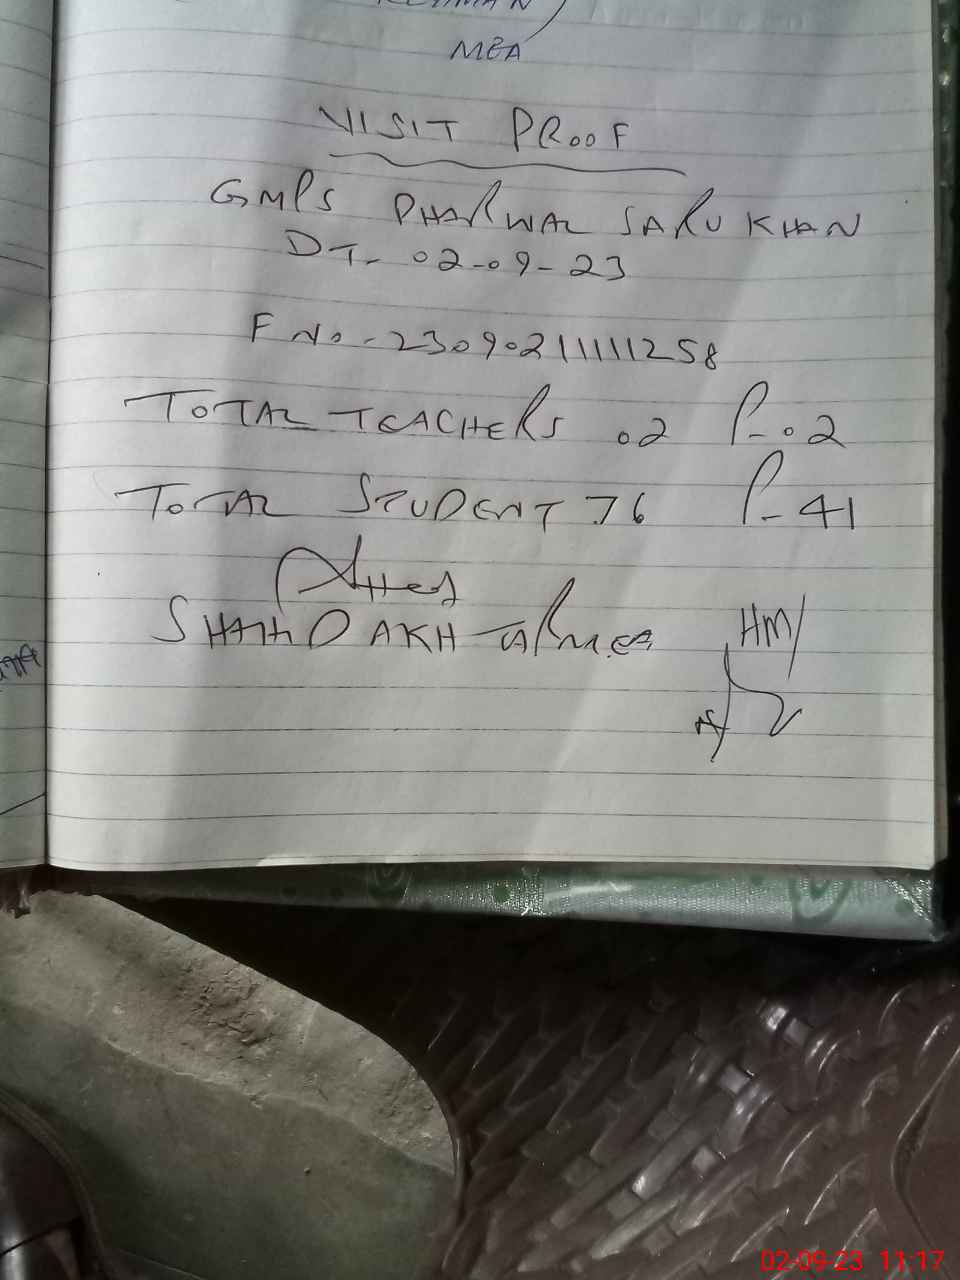 MEA
VISIT PROOF
GMPS DHARWAL SARUKHAN
DT- 02-09-23
F No-23090211111258
TOTAL TEACHERS 02 P-02
TOTAL STUDENT 76 P-41
SHAHID AKHTAR MEA
HM
02-09-23 11:17